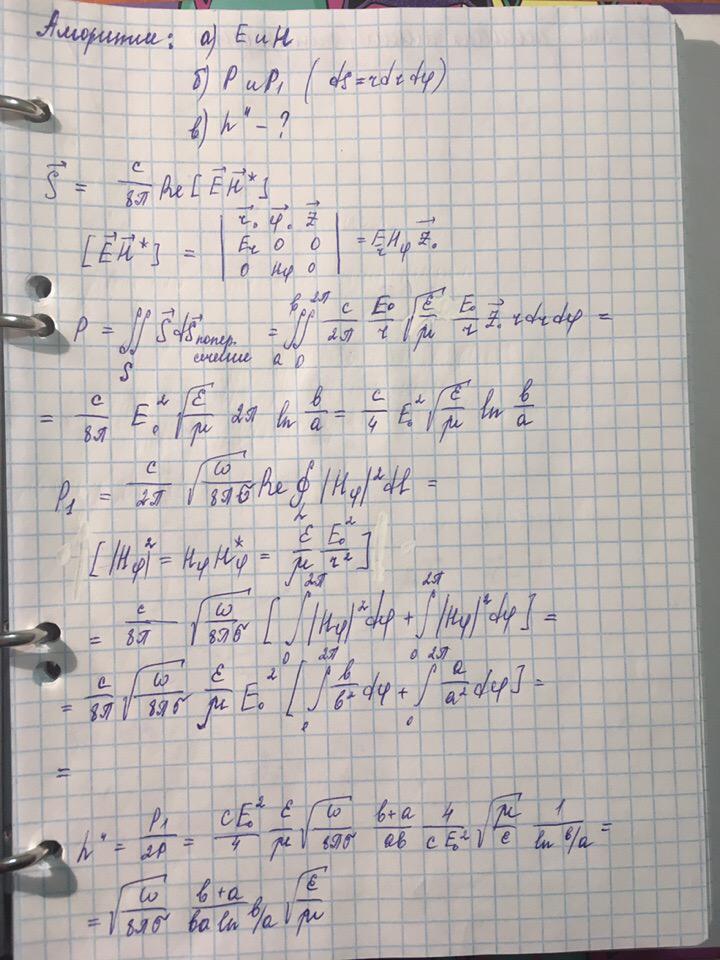 Алгоритм: а) E и H
б) P и P₁ ( dS = r dr dφ)
в) h" - ?
S⃗ = c/8π Re [E⃗ H⃗*]
[E⃗ H⃗*] = | r⃗₀ φ⃗₀ z⃗ ; Eᵣ 0 0 ; 0 Hφ 0 | = Eᵣ Hφ z⃗₀
P = ∬_S S⃗ dS⃗ попер. сечение = ∫_a^b ∫_0^2π c/2π E₀/r √(ε/μ) E₀/r z⃗₀ r dr dφ =
= c/8π E₀² √(ε/μ) 2π ln b/a = c/4 E₀² √(ε/μ) ln b/a
P₁ = c/2π √(ω/8πσ) Re ∮ |Hφ|² dl =
[ |Hφ|² = Hφ Hφ* = ε/μ E₀²/r² ]
= c/8π √(ω/8πσ) [ ∫_0^2π |Hφ|² dφ + ∫_0^2π |Hφ|² dφ ] =
= c/8π √(ω/8πσ) ε/μ E₀² [ ∫_0^2π b/b² dφ + ∫_0^2π a/a² dφ ] =
=
h" = P₁/2P = cE₀²/4 ε/μ √(ω/8πσ) b+a/ab 4/cE₀² √(μ/ε) 1/ln b/a =
= √(ω/8πσ) b+a/ba ln b/a √(ε/μ)